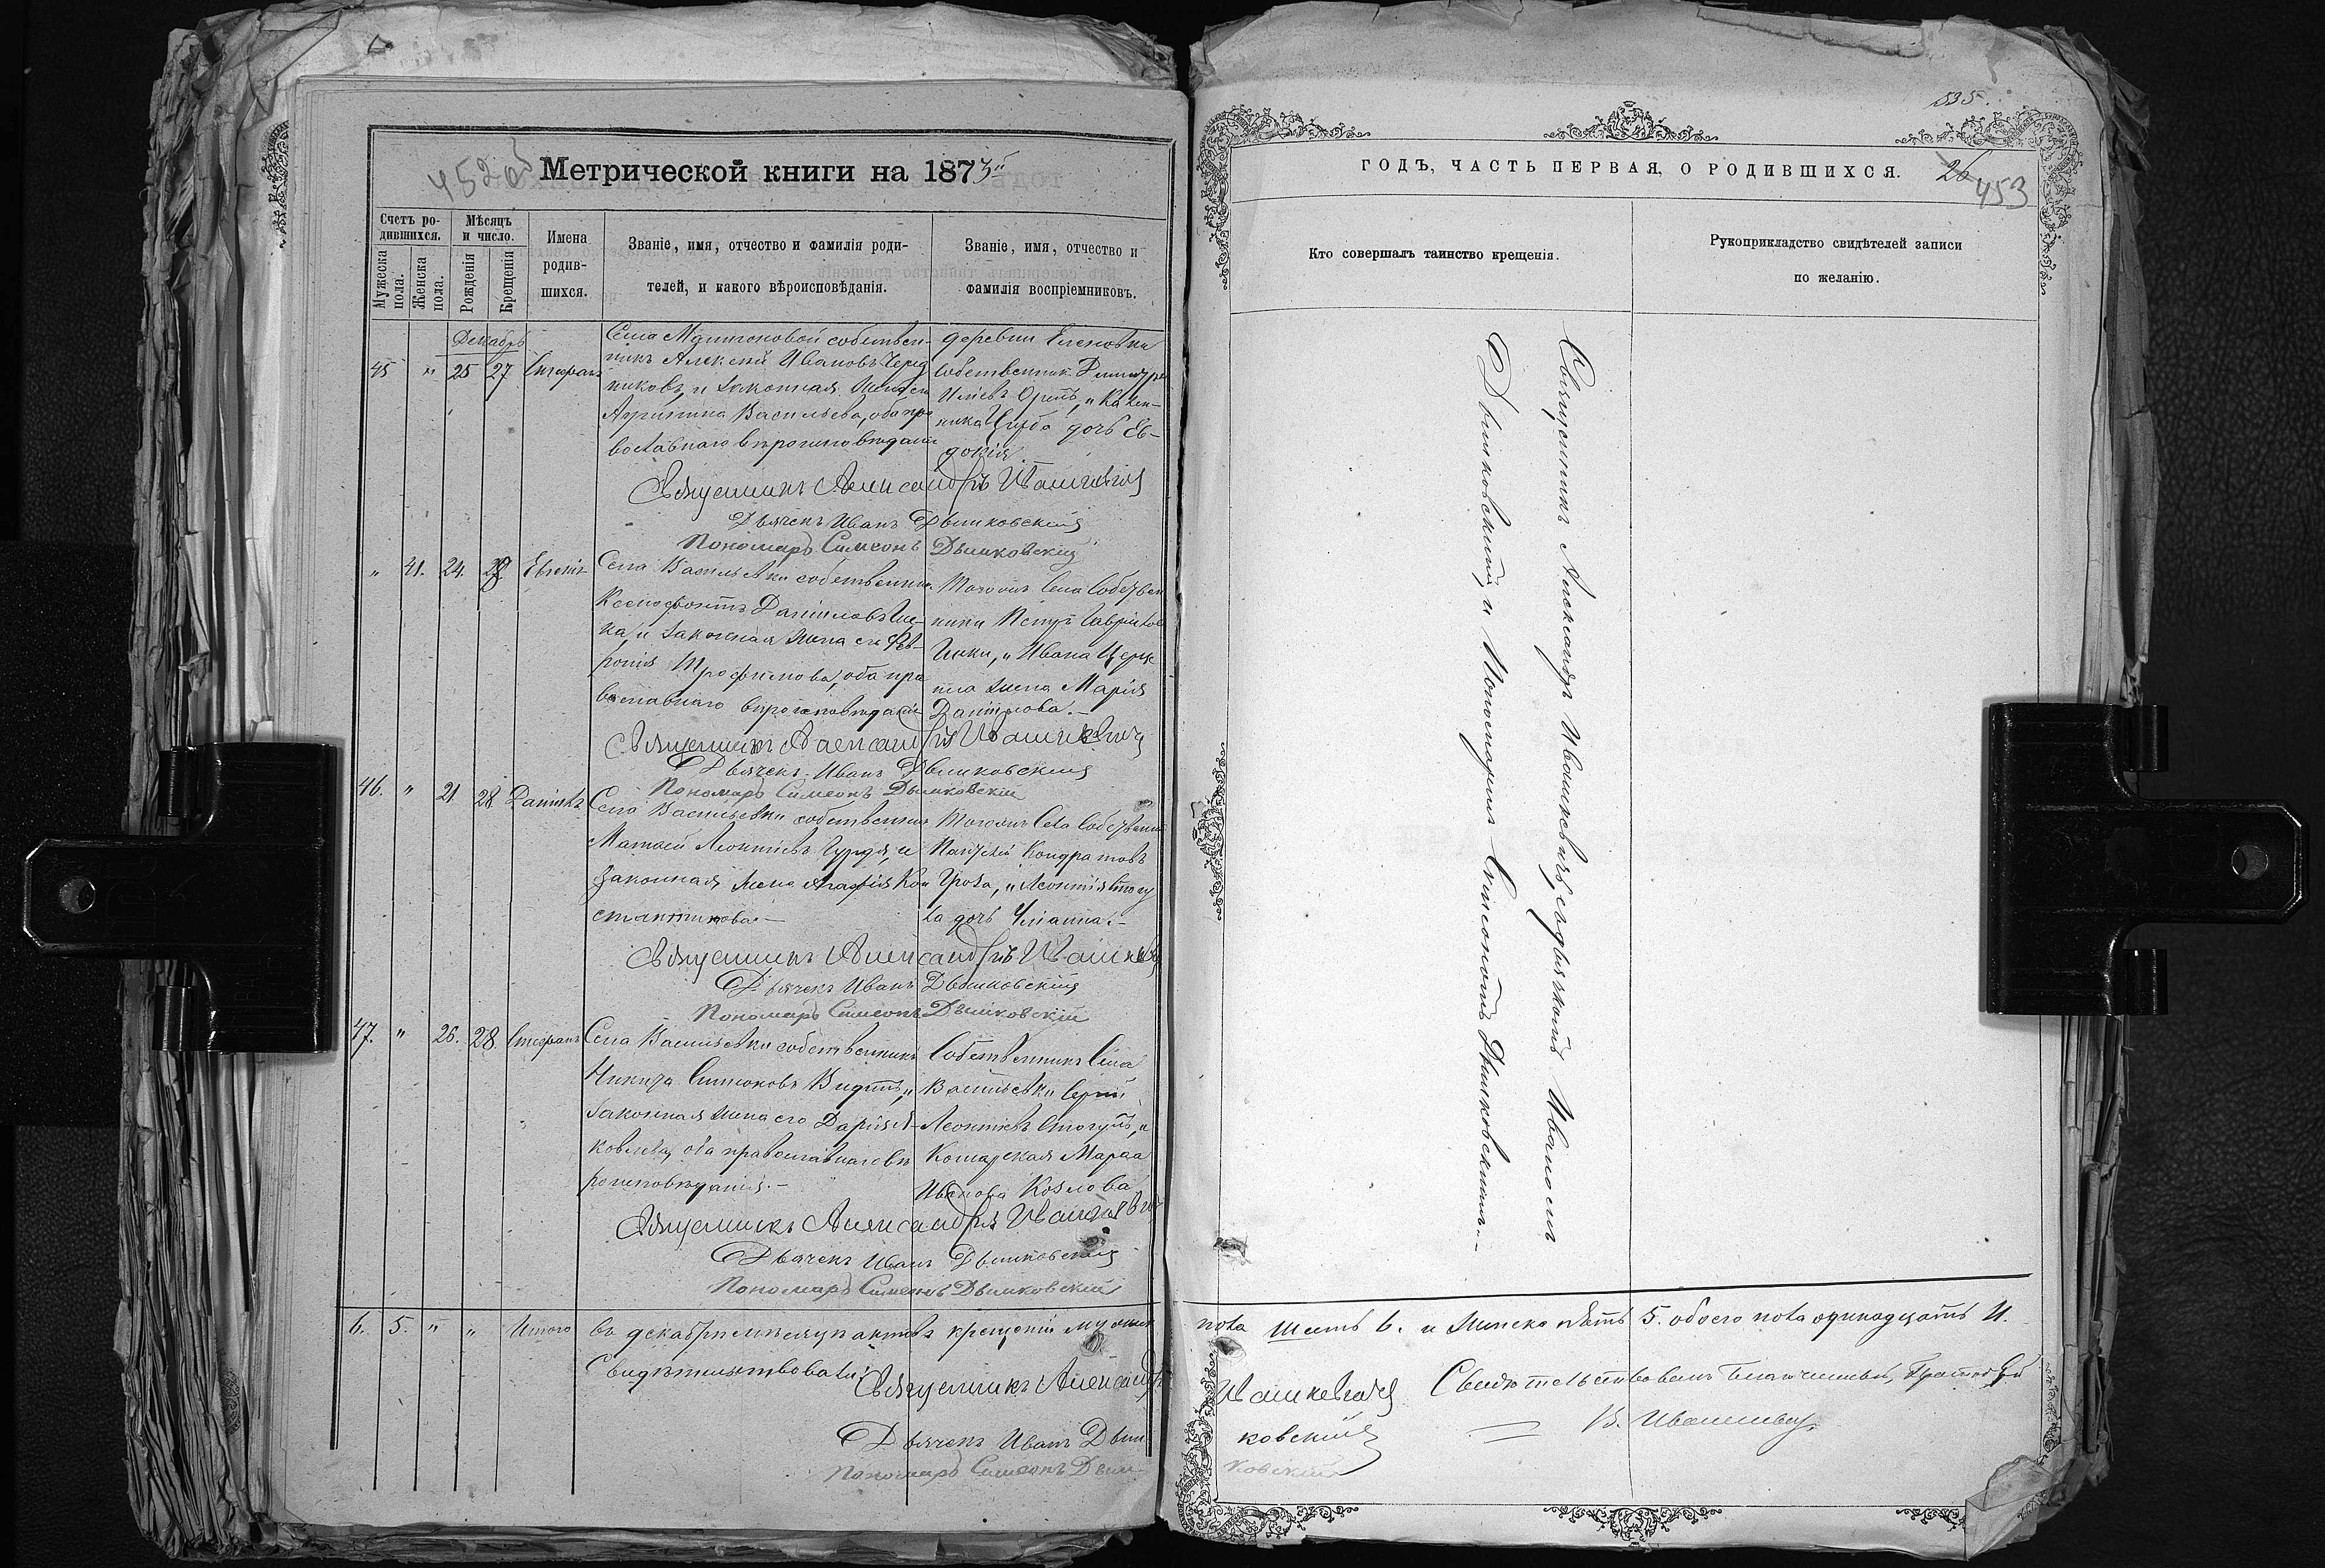 452 об
Метрической книги на 1873й
Счетъ ро-
дившихся.
Мужеска пола.
Женска пола.
Мѣсяцъ
и число.
Рожденія
Крещенія
Имена
родив-
шихся.
Званіе, имя, отчество и фамилія роди-
телей, и какого вѣроисповѣданія.
Званіе, имя, отчество и
фамилія воспріемниковъ.
Декабрь
45 " 25 27 Стефанъ
Села собствен-
никъ Алексѣй Ивановъ Черед
никовъ, и законная жена его
Васильева, оба пра
вославнаго вѣроисповѣданія
деревни Еленовки
собственник
"
дочь Ев-
докія.
Священникъ Александръ Ивашкевичъ
Дьячекъ Иванъ Дьшковскій
Пономарь Симеонъ Дьшковскій
" 41. 24. 28 Евгенія
Села Васильевки собственникъ
Ксенофонтъ Даніиловъ
ка, и законная жена его Фев-
ронія Трофимова, оба пра
вославнаго вѣроисповѣданія
Тогожъ села собствен
ники Петръ Гавріилов
" Ивана
жена Марія
Даніилова.-
Священникъ Александръ Ивашкевичъ
Дьячекъ Иванъ Дьшковскій
Пономарь Симеонъ Дьшковскій
46. " 21 28 Даніилъ
Села Васильевки собственникъ
Матѳей Леонтіевъ Гурдя, и
законная жена Агафія Кон
стантинова.-
Тогожъ села собственникъ
Кондратовъ
" Леонтія
дочь Уліанна.-
Священникъ Александръ Ивашкевичъ
Дьячекъ Иванъ Дьшковскій
Пономарь Симеонъ Дьшковскій
47. " 26. 28. Стефанъ
Села Васильевки собственникъ
Никита Симеоновъ
законная жена его Дарія Я-
ковлева, оба православнаго вѣ
роисповѣданія.-
Собственникъ села
Васильевки Сергій
Леонтіевъ
Марѳа
Иванова Козлова
Священникъ Александръ Ивашкевичъ
Дьячекъ Иванъ Дьшковскій
Пономарь Симеонъ Дьшковскій
6. 5. " " Итого въ декабрѣ мѣсяцѣ актовъ крещенія мужеск
Свидѣтельствовали:
Священникъ Александръ
Дьячекъ Иванъ Дьш
Пономарь Симеонъ Дьш-
535.
ГОДЪ, ЧАСТЬ ПЕРВАЯ, О РОДИВШИХСЯ.
26
453
Кто совершалъ таинство крещенія.
Рукоприкладство свидѣтелей записи
по желанію.
Священникъ Александръ Ивашкевичъ, съ дьячкомъ Иваномъ
Дьшковскимъ, и Пономаремъ Симеономъ Дьшковскимъ.-
пола шесть 6. и женска пять 5. обоего пола одинадцать 11.
Ивашкевичъ
ковскій
ковскій
Свидѣтельствовалъ Благочинный, Протоіерей
В. Ивашкевичъ.